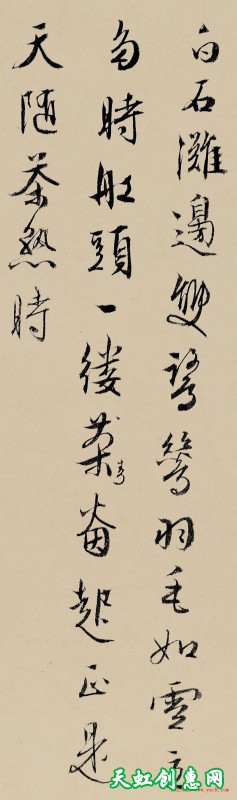 白石灘邊雙鷺鷥羽毛如雪立
多時舡頭一縷青起正是
天隨茶熟時
天虹创意网